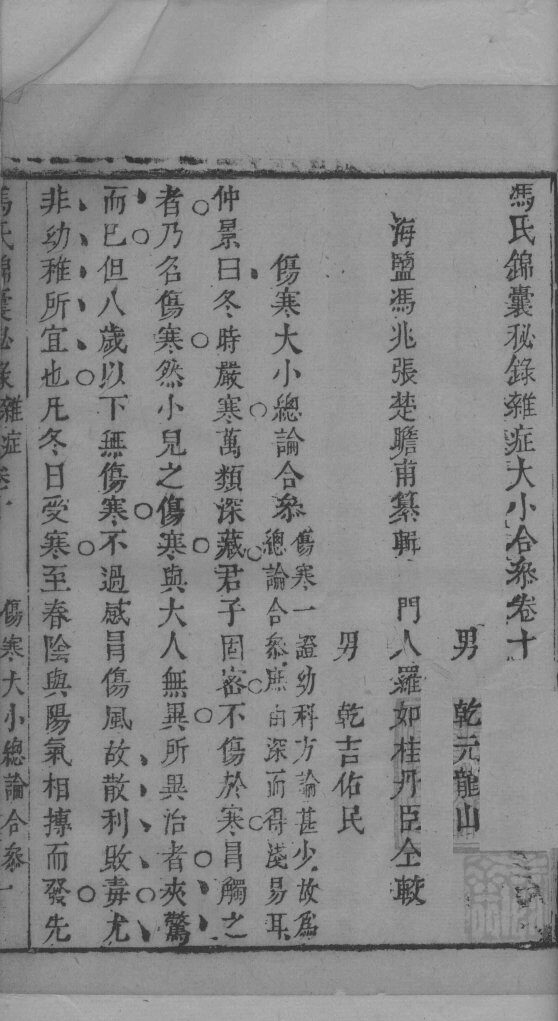 馮氏錦囊秘錄雜症大小合叅卷十
男　乾元龍山
海鹽馮兆張楚瞻甫纂輯　門人羅如桂丹臣仝較
男　乾吉佑民
傷寒大小總論合叅
傷寒一證幼科方論甚少故爲
總論合叅庶由深而得淺易耳
仲景曰冬時嚴寒萬類深藏君子固密不傷於寒冐觸之
者乃名傷寒然小兒之傷寒與大人無異所異治者夾驚
而已但八歲以下無傷寒不過感冐傷風故散利敗毒尤
非幼稚所宜也凡冬日受寒至春陰與陽氣相摶而發先
馮氏錦囊秘錄雜症卷十　傷寒大小總論合叅一